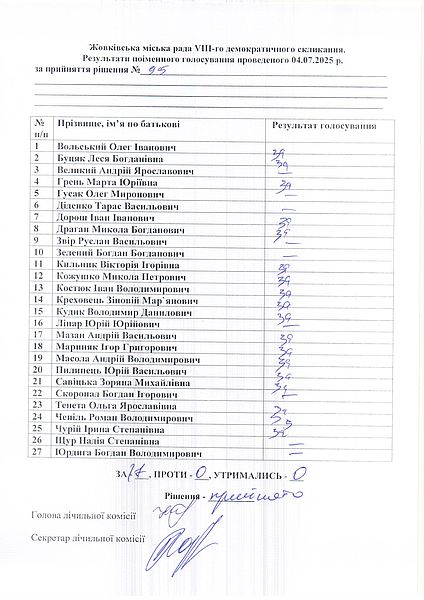 Жовківська міська рада VIII-го демократичного скликання.
Результати поіменного голосування проведеного 04.07.2025 р.
за прийняття рішення № 95
№ п/п Прізвище, ім’я по батькові Результат голосування
1 Вольський Олег Іванович
2 Буцяк Леся Богданівна за
3 Великий Андрій Ярославович за
4 Грень Марта Юріївна за
5 Гусак Олег Миронович —
6 Діденко Тарас Васильович —
7 Дорош Іван Іванович за
8 Драган Микола Богданович за
9 Звір Руслан Васильович —
10 Зелений Богдан Богданович —
11 Кильник Вікторія Ігорівна за
12 Кожушко Микола Петрович за
13 Костюк Іван Володимирович за
14 Креховець Зіновій Мар`янович за
15 Кудик Володимир Данилович за
16 Ліпар Юрій Юрійович —
17 Мазан Андрій Васильович за
18 Мариняк Ігор Григорович за
19 Масола Андрій Володимирович за
20 Пилипець Юрій Васильович за
21 Савіцька Зоряна Михайлівна за
22 Скоропад Богдан Ігорович —
23 Тенета Ольга Ярославівна за
24 Чепіль Роман Володимирович за
25 Чурій Ірина Степанівна за
26 Щур Надія Степанівна —
27 Юрдига Богдан Володимирович —
ЗА , ПРОТИ - 0, УТРИМАЛИСЬ - 0
Рішення - прийнято
Голова лічильної комісії
Секретар лічильної комісії